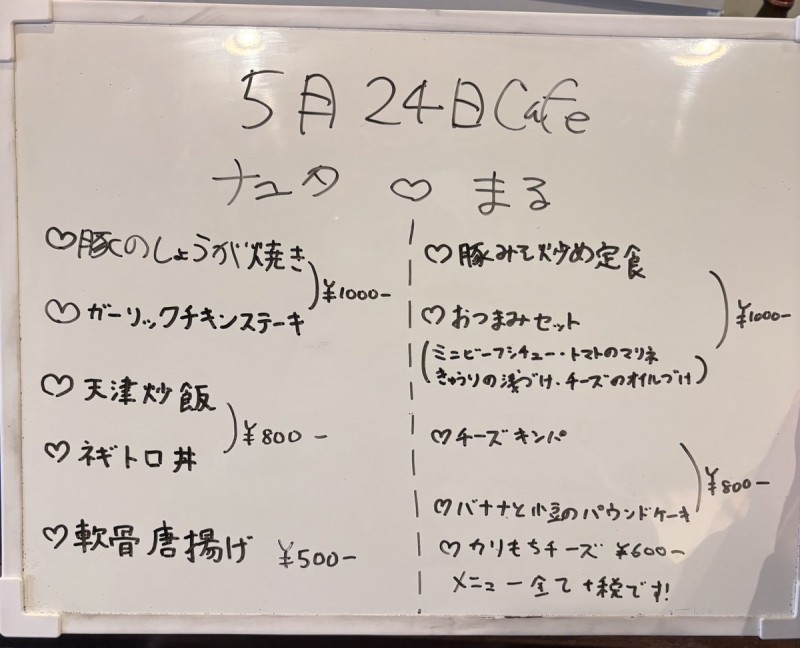 5月24日Cafe
ナユタ ♡ まる
♡豚のしょうが焼き
♡ガーリックチキンステーキ
¥1000-
♡天津炒飯
♡ネギトロ丼
¥800-
♡軟骨唐揚げ ¥500-
♡豚みそ炒め定食
♡おつまみセット
(ミニビーフシチュー・トマトのマリネ
きゅうりの浅づけ・チーズのオイルづけ)
¥1000-
♡チーズキンパ
♡バナナと小豆のパウンドケーキ
¥800-
♡カリもちチーズ ¥600-
メニュー全て+税です!